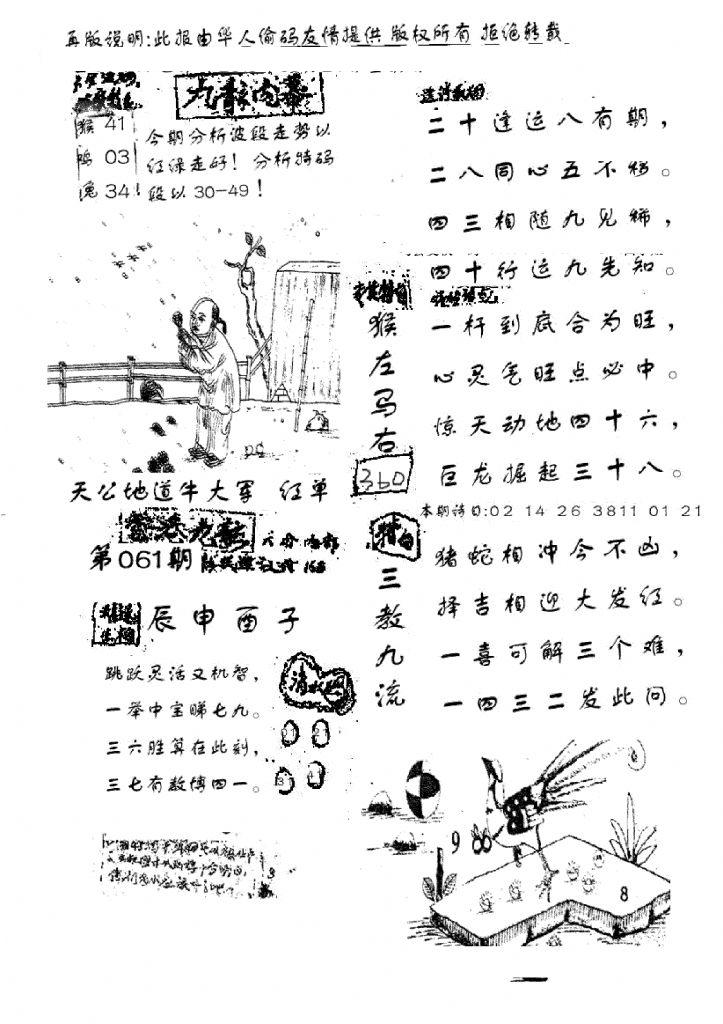 再版说明:此报由华人偷码友情提供 版权所有 拒绝转载
九龍内幕
猴 41
鸡 03
兔 34!
今期分析波段走势以
红绿走好! 分析特码
段以 30-49!
天公地道牛大军 红单
第061期
辰申酉子
跳跃灵活又机智,
一举中宝睇七九。
三六胜算在此刻,
三七有数博四一。
猴左马右
360
三教九流
二十逢运八有期,
二八同心五不移。
四三相随九见稀,
四十行运九先知。
一杆到底合为旺,
心灵气旺点必中。
惊天动地四十六,
巨龙掘起三十八。
本期特日:02 14 26 3811 01 21
猪蛇相冲今不凶,
择吉相迎大发红。
一喜可解三个难,
一四三二发此问。
9
8